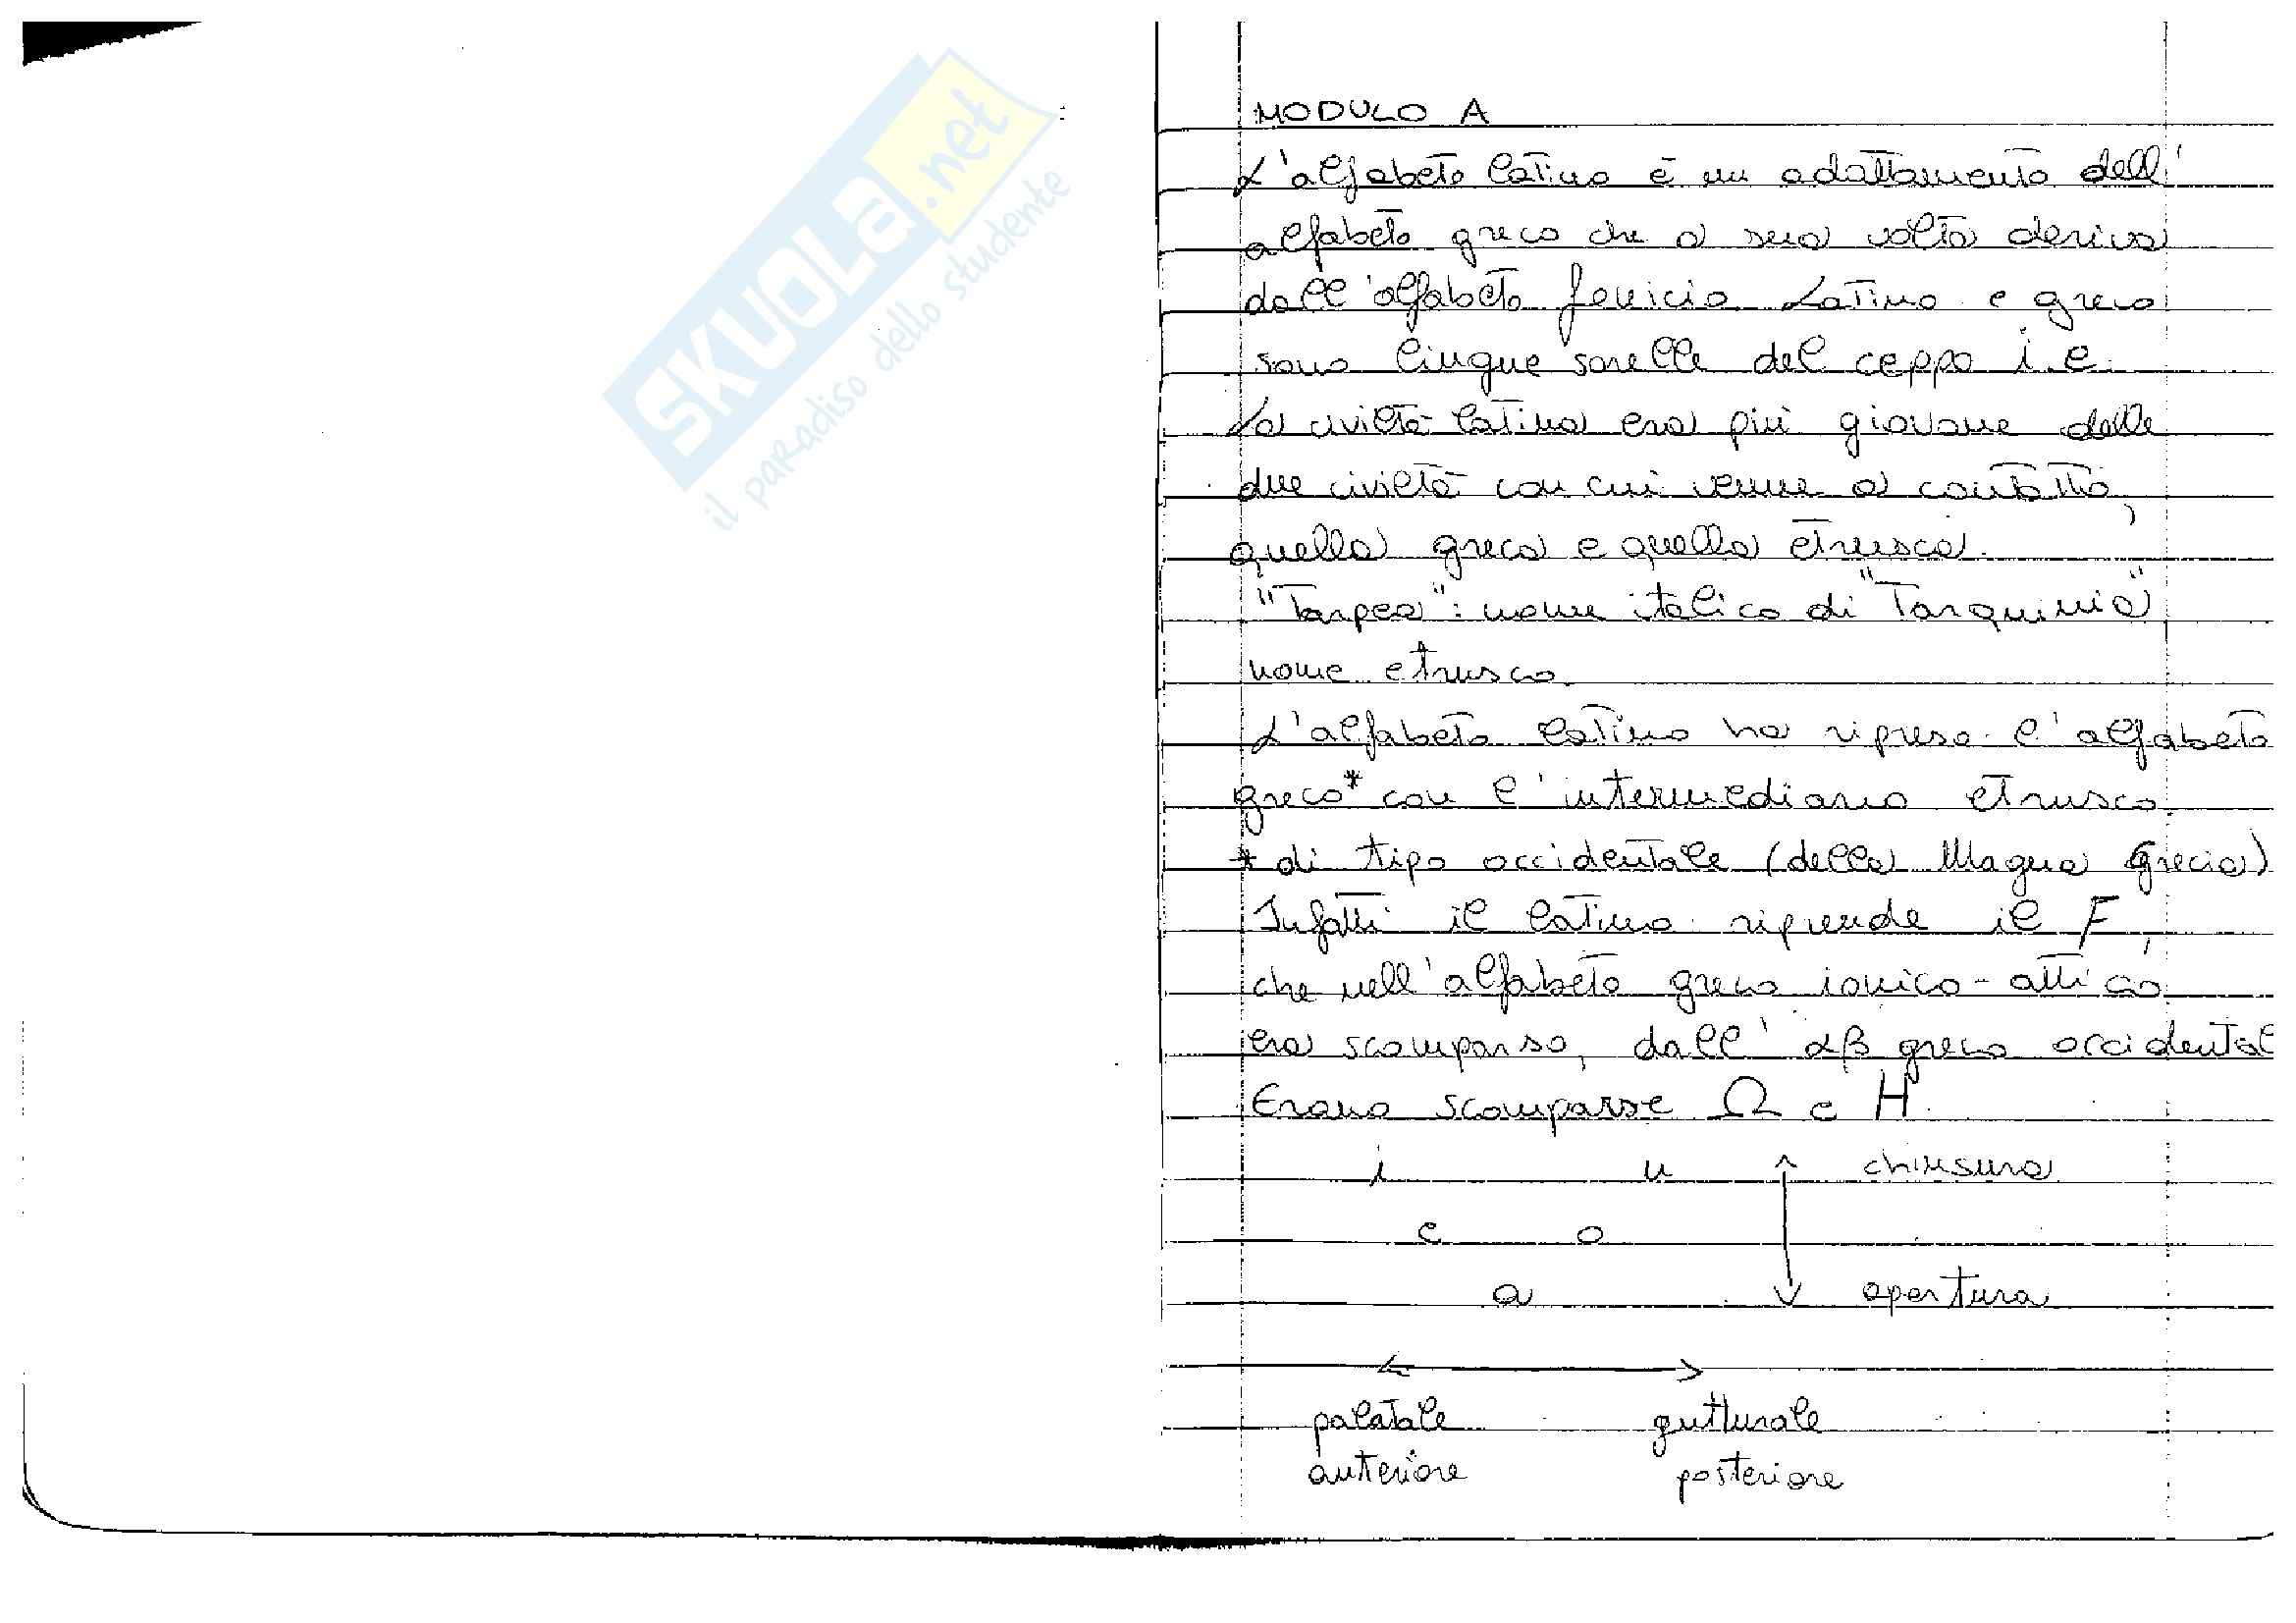 SKUOLA.net
il paradiso dello studente
MODULO A
L'alfabeto latino è un adattamento dell'
alfabeto greco che a sua volta deriva
dall'alfabeto fenicio. Latino e greco
sono lingue sorelle del ceppo i.e.
La civiltà latina era più giovane delle
due civiltà con cui venne a contatto,
quella greca e quella etrusca.
"Tarpea": nome italico di "Tarquinia"
nome etrusco.
L'alfabeto latino ha ripreso l'alfabeto
greco* con l'intermediario etrusco.
* di tipo occidentale (della Magna Grecia)
Infatti il latino riprende il F,
che nell'alfabeto greco ionico-attico
era scomparso, dall' αβ greco occidental
Erano scomparse Ω e H.
i u chiusura
e o
a apertura
palatale gutturale
anteriore posteriore